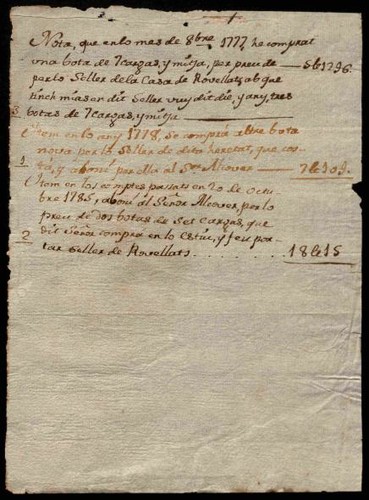 Nota, que en lo mes de 8bre 1777 he comprat
una bota de 7 cargas, y mitja, per preu de
per lo Seller de la Casa de Rovellats ab que
tinch mias en dit Seller vuy dit die, y any, tres
3 botas de 7 cargas, y mitja
Item en lo any 1778, se comprá altre bota
nova per lo Seller de dita heretat, que cos-
1 tá, y aboní per ella al Sr. Alcover
Item en los comptes passats en 20 de Octu-
bre 1785, aboní al Señor Alcover, per lo
preu de dos botas de Set cargas, que
2 dit Señor comprá en lo Estiu, y feu por-
tar Seller de Rovellats. 18 15